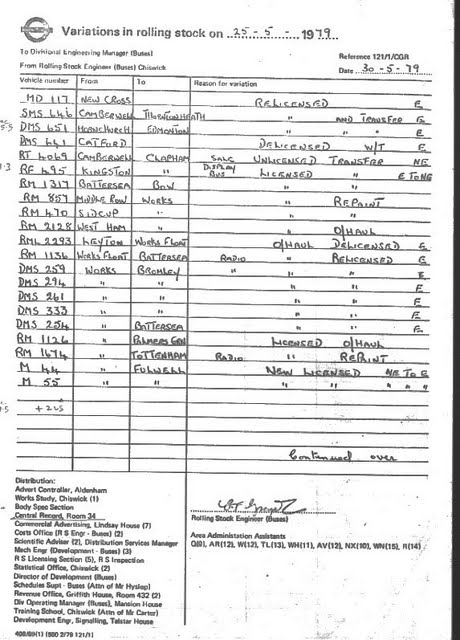 Variations in rolling stock on 25-5-1979
To Divisional Engineering Manager (Buses)
Reference 121/1/CGR
From Rolling Stock Engineer (Buses) Chiswick
Date 30-5-79
Vehicle number From To Reason for variation
MD 117 NEW CROSS RELICENSED E
SMS 646 CAMBERWELL THORNTON HEATH " AND TRANSFER E
DMS 651 HORNCHURCH EDMONTON " " " E
DMS 641 CATFORD DELICENSED W/T E
RT 4069 CAMBERWELL CLAPHAM SALC UNLICENSED TRANSFER NE
RF 495 KINGSTON " DISPLAY BUS LICENSED " E TO NE
RM 1317 BATTERSEA BOW " "
RM 857 MIDDLE ROW WORKS " REPAINT
RM 470 SIDCUP " " "
RM 2128 WEST HAM " " O/HAUL
RML 2293 LEYTON WORKS FLOAT O/HAUL DELICENSED E
RM 1136 WORKS FLOAT BATTERSEA RADIO " RELICENSED E
DMS 259 WORKS BROMLEY " " E
DMS 294 " " " " E
DMS 261 " " " " E
DMS 333 " " " " E
DMS 254 " BATTERSEA " " E
RM 1126 " PALMERS GRN LICENSED O/HAUL
RM 1674 " TOTTENHAM RADIO " REPAINT
M 44 " FULWELL NEW LICENSED NE TO E
M 55 " " " " " " "
Continued over
Distribution:
Advert Controller, Aldenham
Works Study, Chiswick (1)
Body Spec Section
Central Record, Room 34
Commercial Advertising, Lindsay House (7)
Costs Office (R S Engr - Buses) (2)
Scientific Adviser (2), Distribution Services Manager
Mech Engr (Development - Buses) (3)
R S Licensing Section (5), R S Inspection
Statistical Office, Chiswick (2)
Director of Development (Buses)
Schedules Supt - Buses (Attn of Mr Hyslop)
Revenue Office, Griffith House, Room 432 (2)
Div Operating Manager (Buses), Mansion House
Training School, Chiswick (Attn of Mr Carter)
Development Engr, Signalling, Telstar House
Rolling Stock Engineer (Buses)
Area Administation Assistants
Q(9), AR(12), W(12), TL(13), WH(11), AV(12), NX(10), WN(15), R(14)